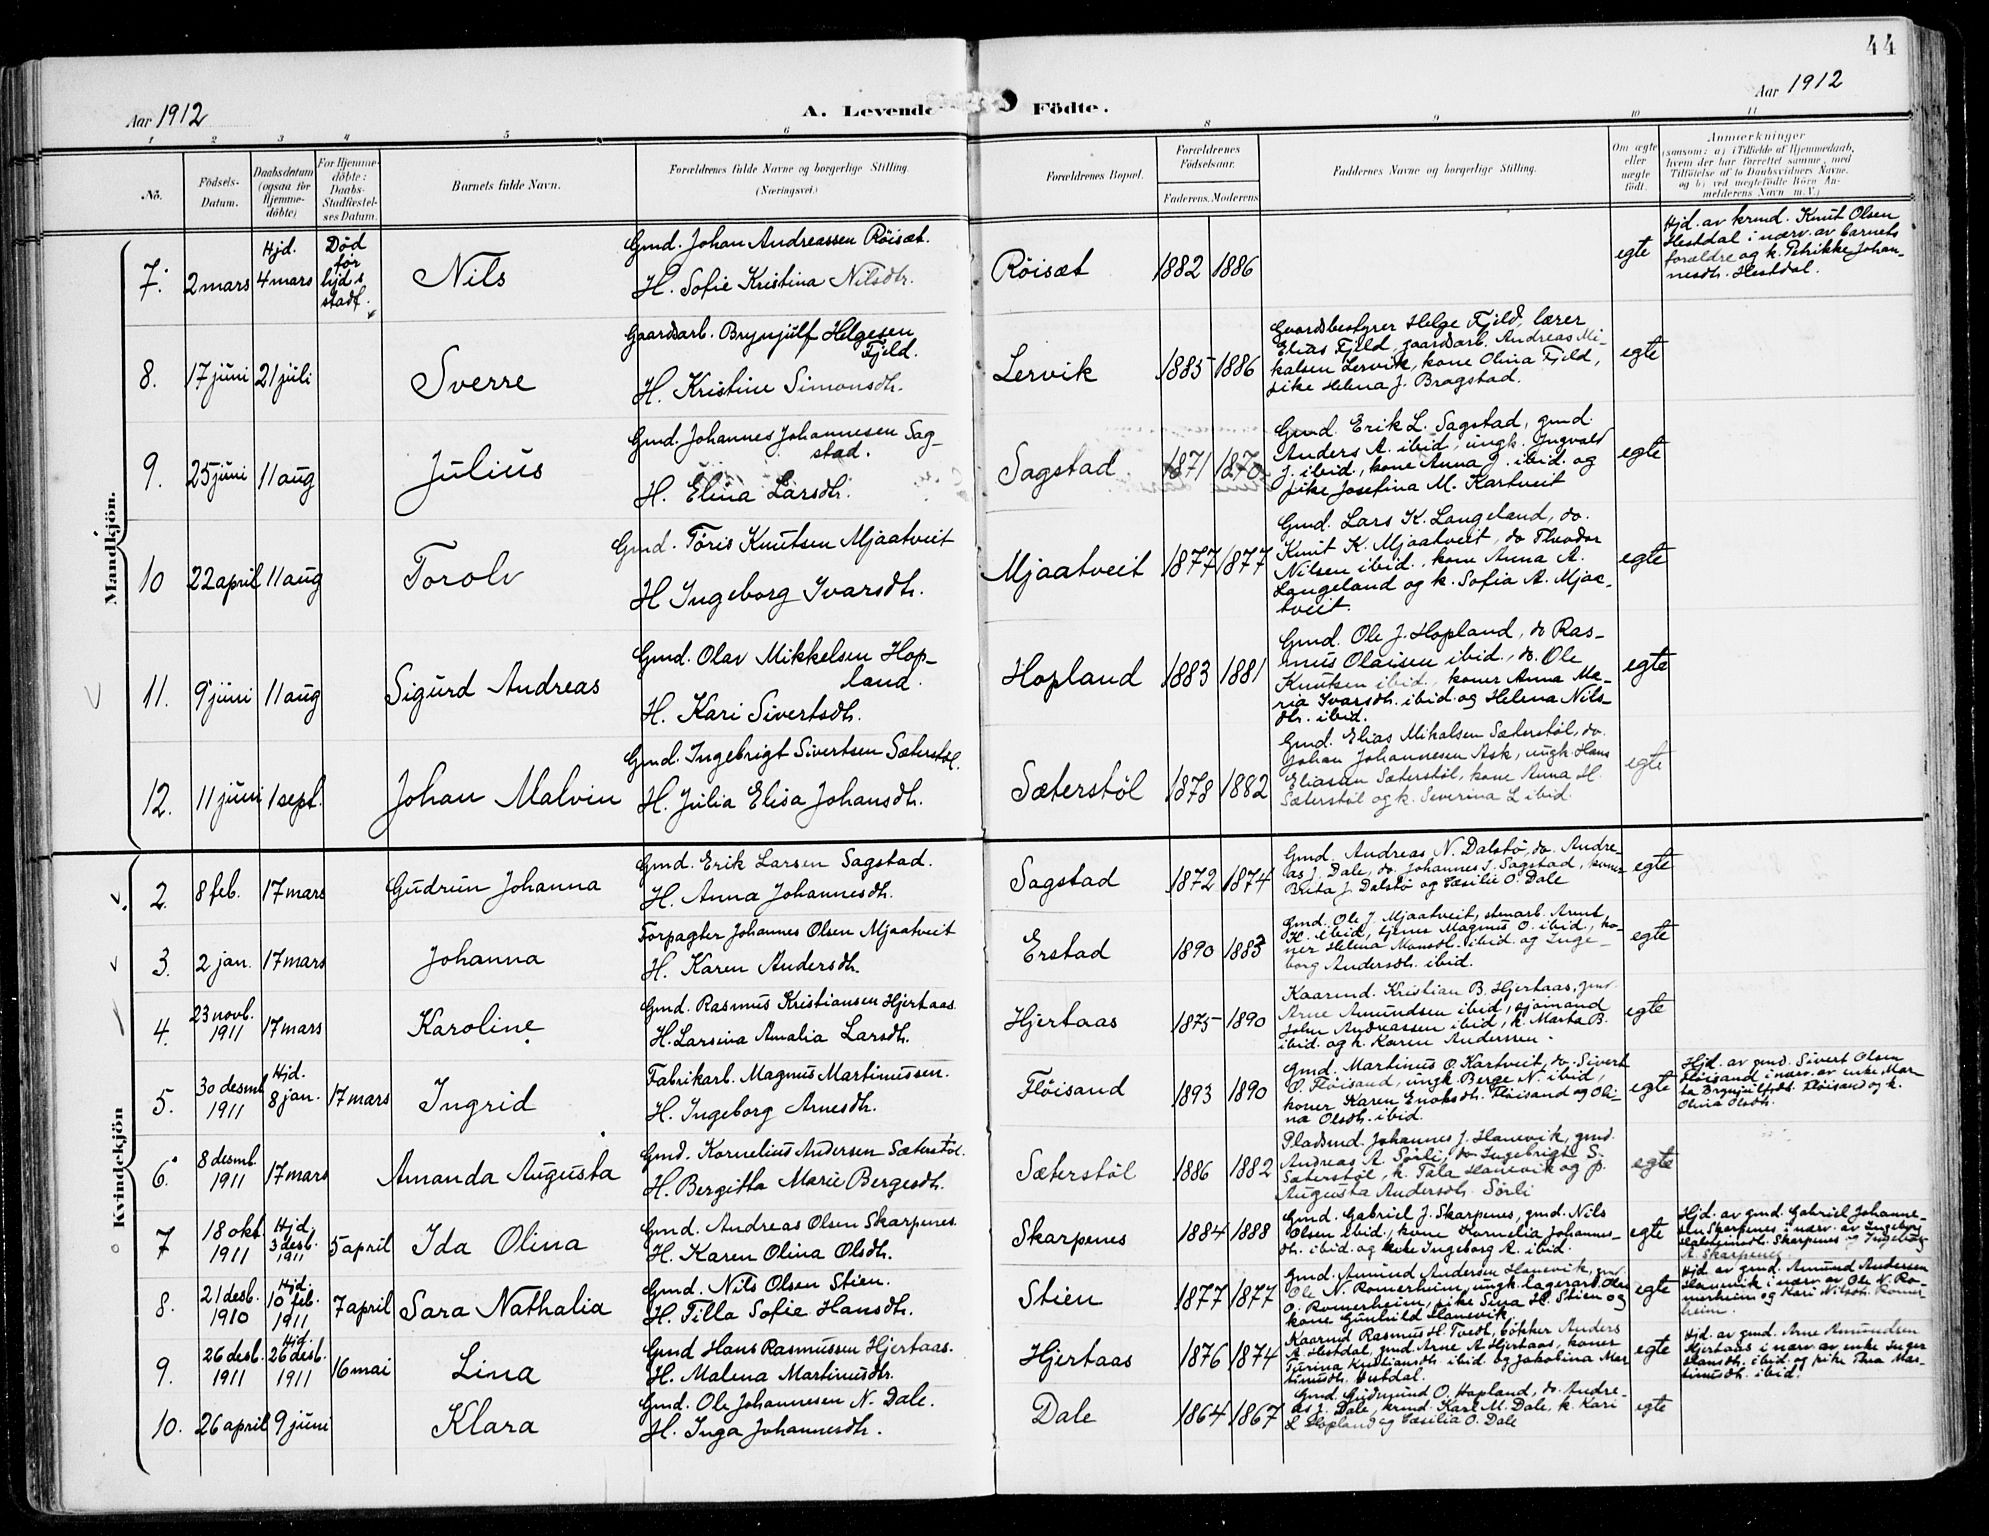 44
Aar 1912
A. Levende Födte.
Aar 1912
1 2 3 4 5 6 8 9 10 11
No.
Födsels-Datum.
Daabsdatum (ogsaa for Hjemme-döbte)
For Hjemme-döbte: Daabs-Stadfæstelses Datum.
Barnets fulde Navn.
Forældrenes fulde Navne og borgerlige Stilling. (Næringsvei.)
Forældrenes Bopæl.
Forældrenes Födselsaar.
Faderens. Moderens
Faddernes Navne og borgerlige Stilling.
Om ægte eller uægte födt.
Anmærkninger
(saasom: a) i Tilfælde af Hjemmedaab, hvem der har forrettet samme, med Tilföielse af to Daabsvidners Navne. og b) ved uægtefödte Börn Anmelderens Navn m. V.)
Mandkjön.
7. 2 mars Hjd. 4 mars Död før hjd.s stadf. Nils
Gmd. Johan Andreassen Röisæt.
H. Sofie Kristina Nilsdtr.
Röisæt 1882 1886 egte
Hjd. av krmd. Knut Olsen
Hestdal i nærv. av barnets
forældre og k. Petrikke Johan-
nesdtr. Hestdal.
8. 17 juni 21 juli Sverre
Gaardsarb. Brynjulf Helgesen
Fjeld.
H. Kristine Simonsdtr.
Lervik 1885 1886
Gaardsbestyrer Helge Fjeld, lærer
Elias Fjeld, gaardsarb. Andreas Mi-
kalsen Lervik, kone Olina Fjeld,
pike Helena J. Bragstad.
egte
9. 25 juni 11 aug Julius
Gmd. Johannes Johannesen Sag-
stad.
H. Elina Larsdtr.
Sagstad 1871 1870
Gmd. Erik L. Sagstad, gmd.
Anders A. ibid, ungk. Ingvald
J. ibid., kone Anna J. ibid. og
pike Josefina M. Kartveit
egte
10 22 april 11 aug Torolv
Gmd. Töris Knutsen Mjaatveit
H Ingeborg Ivarsdtr.
Mjaatveit 1877 1877
Gmd. Lars K. Langeland, do.
Knut K. Mjaatveit, do Theodor
Nilsen ibid., kone Anna A.
Langeland og k. Sofia A. Mjaa-
tveit.
egte
11. 9 juni 11 aug Sigurd Andreas
Gmd. Olav Mikkelsen Hop-
land.
H. Kari Sivertsdtr.
Hopland 1883 1881
Gmd. Ole J. Hopland, do Ras-
mus Olaisen ibid., do. Ole
Knutsen ibid., koner Anna Ma-
ria Ivarsdtr. ibid. og Helena Nils-
dtr. ibid.
egte
12. 11 juni 1 sept. Johan Malvin
Gmd. Ingebrigt Sivertsen Sæterstøl.
H. Julia Elisa Johansdtr.
Sæterstøl 1878 1882
Gmd. Elias Mikalsen Sæterstøl, do.
Johan Johannesen Ask, ungk. Hans
Eliasen Sæterstøl, kone Anna H.
Sæterstøl og k. Severina L ibid.
egte
Kvindekjön
2. 8 feb. 17 mars Gudrun Johanna
Gmd. Erik Larsen Sagstad.
H. Anna Johannesdtr.
Sagstad 1872 1874
Gmd. Andreas N. Dalstø, do. Andre-
as J. Dale, do. Johannes J. Sagstad, koner
Brita J. Dalstø og Cæsilie O. Dale
egte
3. 2 jan. 17 mars Johanna
Forpagter Johannes Olsen Mjaatveit
H. Karen Andersdtr.
Erstad 1890 1883
Gmd. Ole J. Mjaatveit, stenarb. Arnt
H. ibid, tjener Magnus O. ibid., ko-
ner Helena Monsdtr. ibid. og Inge-
borg Andersdtr. ibid.
egte
4. 23 novb. 1911 17 mars Karoline
Gmd. Rasmus Kristiansen Hjertaas.
H. Larsina Amalia Larsdtr.
Hjertaas 1875 1890
Kaarmd. Kristian B. Hjertaas, gmd.
Arne Amundsen ibid, sjömand
John Andreassen ibid, k. Marta B.
ibid. og k. Karen Andersen.
egte
5. 30 desmb 1911 Hjd. 8 jan. 17 mars Ingrid
Fabrikarb. Magnus Martinussen.
H. Ingeborg Arnesdtr.
Flöisand 1893 1890
Gmd. Martinus O. Kartveit, do. Sivert
O. Flöisand, ungk. Berge N. ibid,
koner Karen Enoksdtr. Flöisand og Oli-
na Olsdtr. ibid.
egte
Hjd. av gmd. Sivert Olsen
Flöisand i nærv. av enke Mar-
ta Brynjulfsdt. Flöisand og k.
Olina Olsdtr.
6. 8 desmb. 1911 17 mars Amanda Augusta
Gmd. Kornelius Andersen Sæterstøl.
H. Bergitta Marie Bergesdtr.
Sæterstøl 1886 1882
Pladsmd. Johannes J. Hanevik, gmd.
Andreas A. Sørli, do Ingebrigt S.
Sæterstøl, k. Tala Hanevik og p.
Augusta Andersdtr. Sørli
egte
7 18 okt. 1911 Hjd. 3 desb. 1911 5 april Ida Olina
Gmd. Andreas Olsen Skarpenes.
H. Karen Olina Olsdtr.
Skarpenes 1884 1888
Gmd. Gabriel J. Skarpenes, gmd. Nils
Olsen ibid., kone Kornelia Johannes-
dtr. ibid. og pike Ingeborg A. ibid.
egte
Hjd. av gmd. Gabriel Johanne-
sen Skarpenes i nærv. av Ingeborg
Skarpenes og Ingeborg
A. Skarpenes.
8. 21 desb. 1910 Hjd. 10 feb. 1911 7 april Sara Nathalia
Gmd. Nils Olsen Stien.
H. Tilla Sofie Hansdtr.
Stien 1877 1877
Gmd. Amund Andersen Hanevik, gmd.
Ole N. Romerheim, ungk. lagerarb. Olai
O. Romerheim, pike Sina H. Stien og
kone Gunhild Hanevik
egte
Hjd. av gmd. Amund Andersen
Hanevik i nærv. av Ole N. Ro-
merheim og Kari Nilsdtr. Romer-
heim.
9. 26 desb. 1911 Hjd. 26 desb. 1911 16 mai Lina
Gmd Hans Rasmussen Hjertaas.
H. Malena Martinusdtr.
Hjertaas 1876 1874
Kaarmd Rasmus H. Tvedt, bökker Anders
A. Hestdal, gmd. Arne A. Hjertaas, koner
Turina Kristiansdtr. ibid. og Jakobina Mar
tinusdtr. Hestdal.
egte
Hjd. av gmd. Arne Amundsen
Hjertaas i nærv. av enke Inger
Hansdtr. ibid. og pike Thea Mar-
tinusdtr. ibid.
10. 26 april 9 juni Klara
Gmd. Ole Johannesen N. Dale.
H. Inga Johannesdtr.
Dale 1864 1867
Gmd. Gudmund O. Hopland, do. Andre-
as J. Dale, krmd. Karl M. Dale, k. Kari
L Hopland og Cæsilia O. Dale
egte